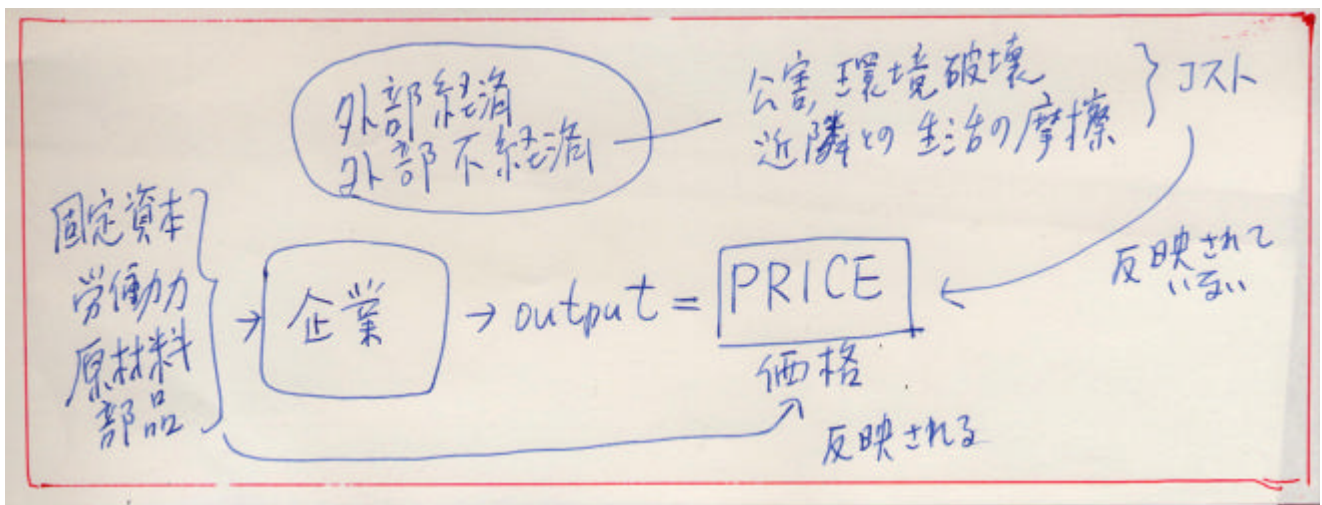 外部経済
外部不経済
公害,環境破壊
近隣との生活の摩擦
コスト
反映されて
いない
固定資本
労働力
原材料
部品
企業
→ output =
PRICE
価格
反映される